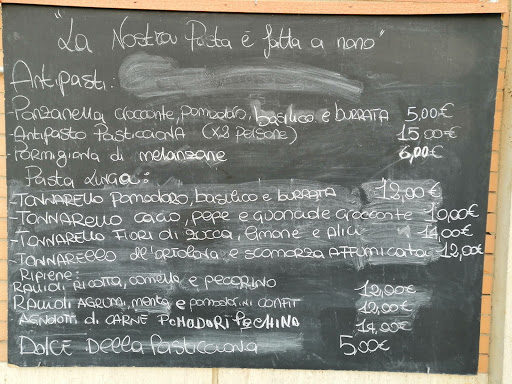 "La Nostra Pasta è fatta a mano"
Antipasti:
-Panzanella croccante, pomodoro, basilico e BURRATA 5,00€
Antipasto Pasticciana (x2 persone) 15,00€
Parmigiana di melanzane 6,00€
Pasta Lunga:
-TONNARELLO pomodoro, basilico e BURRATA 12,00€
-TONNARELLO cacio, pepe e guanciale croccante 10,00€
-TONNARELLO FIORI di zucca, limone e Alici 14,00€
-TONNARELLO all'ortolana, e scamorza AFFUMICATA 12,00€
Ripiene:
RAVIOLI RICOTTA, cannella e pecorino 12,00€
RAVIOLI AGRUMI, menta e pomodorini CONFIT 12,00€
AGNOLOTTI di CARNE POMODORI PACHINO 14,00€
DOLCE DELLA PASTICCIANA 5,00€